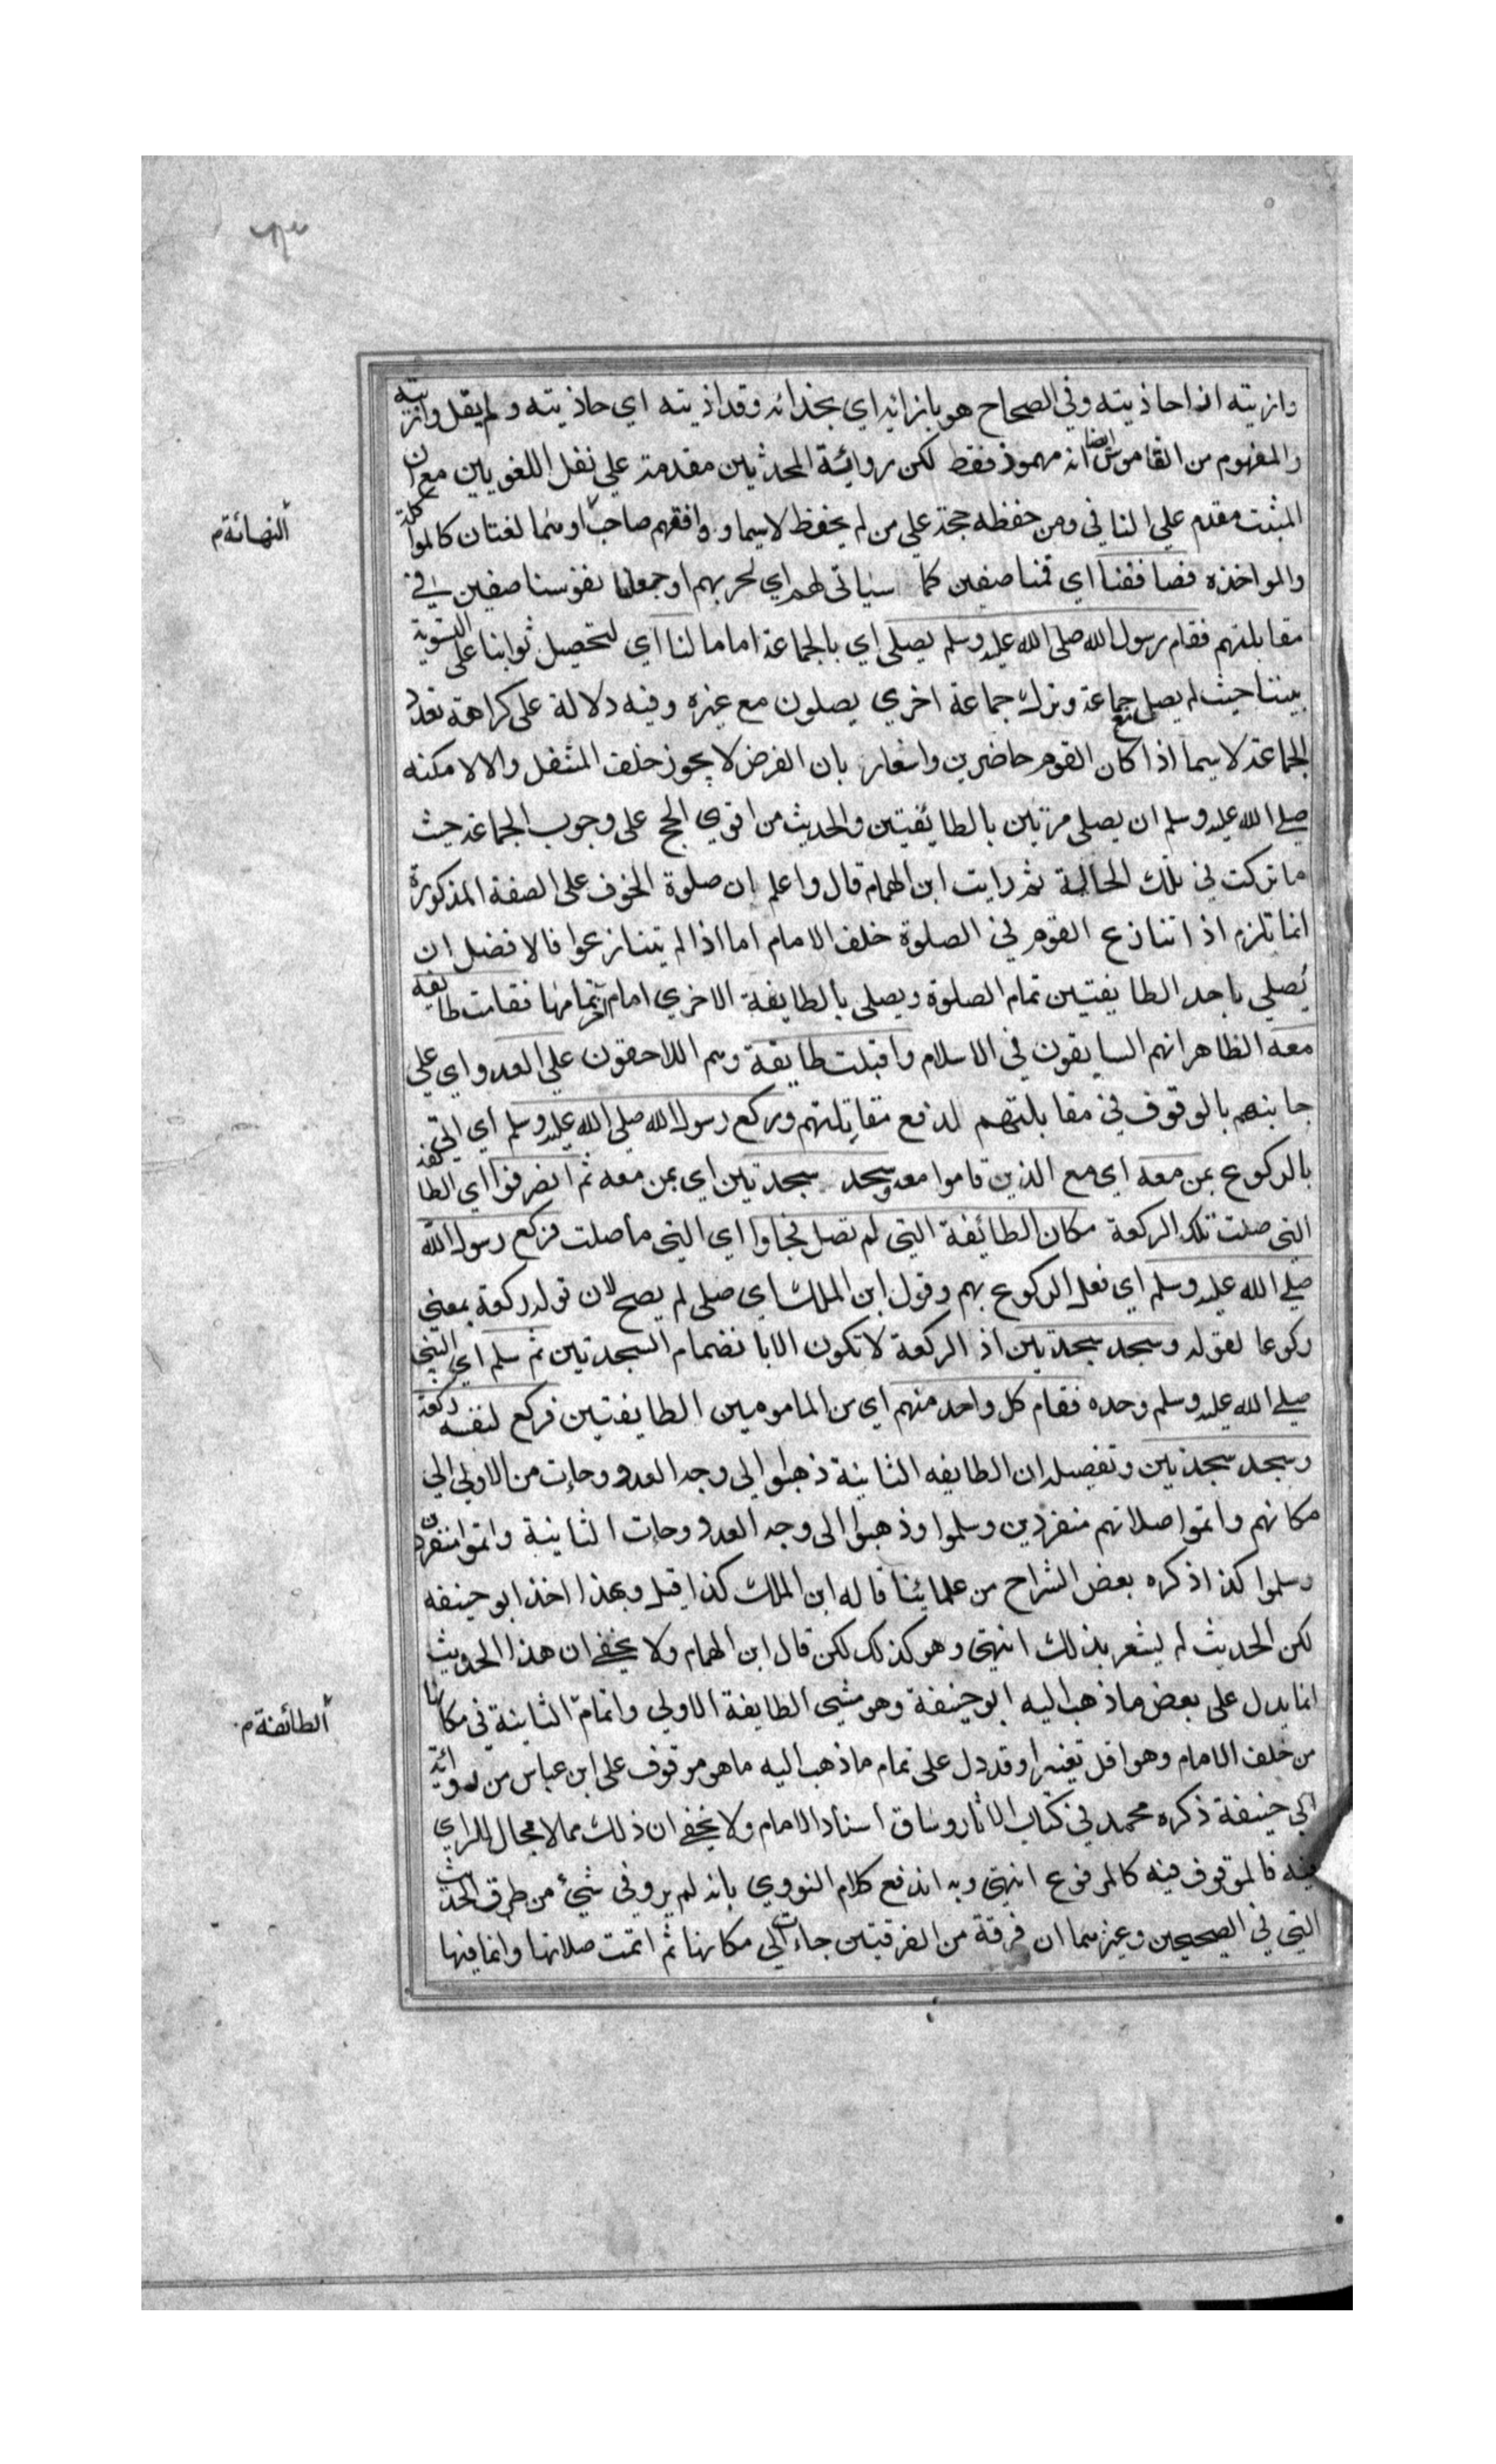 وازيته اذا حاذيته وفي الصحاح هو بازائه اي بحذائه وقد اذيته اي حاذيته ولم يقل وازيته
والمفهوم من القاموس ايضا انه مهموذ فقط لكن روائة المحدثين مقدمة علي نقل اللغويين مع ان
المثبت مقدم علي النافي ومن حفظه حجة علي من لم يحفظ لاسيما و وافقهم صاحب اومنما لغتان كالمواكلة
النهائة م
والمواخذه فصاففنا اي قمنا صفين كما سياتي لهم اي لحربهم او جعلنا نفوسنا صفين في
مقابلتهم فقام رسول الله صلى الله عليه وسلم يصلي اي بالجماعة اماما لنا اي لتحصيل ثوابنا على التسوية
بيننا حيث لم يصل مع جماعة وترك جماعة اخري يصلون مع غيره وفيه دلالة على كراهة تعدد
الجماعة لاسيما اذا كان القوم حاضرين واشعار بان الفرض لا يجوز خلف المتنفل والا لامكنه
صلي الله عليه وسلم ان يصلي مرتين بالطايفتين والحديث من اقوي الحجج على وجوب الجماعة حيث
ما تركت في تلك الحالة ثم رايت ابن الهمام قال واعلم ان صلوة الخوف على الصفة المذكورة
انما تلزم اذا تنازع القوم في الصلوة خلف الامام اما اذا لم يتنازعوا فالافضل ان
يصلي باحد الطايفتين تمام الصلوة ويصلي بالطايفة الاخري امام آخر تمامها فقامت طايفه
معه الظاهر انهم السابقون في الاسلام واقبلت طايفة وهم اللاحقون علي العدو اي علي
جانبهم بالوقوف في مقابلتهم لدفع مقاتلتهم وركع رسول الله صلي الله عليه وسلم اي اتى
بالركوع بمن معه اي مع الذين قاموا معه وسجد سجدتين اي بمن معه ثم انصرفوا اي الطائفه
التي صلت تلك الركعة مكان الطائفة التي لم تصل فجاوا اي التي ما صلت فركع رسول الله
صلي الله عليه وسلم اي فعل الركوع بهم وقول ابن الملك اي صلي لم يصح لان قوله ركعة بمعني
ركوعا لقوله وسجد سجدتين اذ الركعة لا تكون الا بانضمام السجدتين ثم سلم اي النبي
صلي الله عليه وسلم وحده فقام كل واحد منهم اي من المامومين الطايفتين فركع لنفسه ركعة
وسجد سجدتين وتفصيله ان الطايفه الثانية ذهبوا الي وجه العدو وجات من الاولي الي
مكانهم واتموا صلاتهم منفردين وسلموا وذهبوا الى وجه العدو وجات الثانية واتموا منفردين
وسلموا كذا ذكره بعض الشراح من علمائنا قاله ابن الملك كذا قيل وبهذا اخذ ابو حنيفه
لكن الحديث لم يشعر بذلك انتهي وهو كذلك لكن قال ابن الهمام ولا يخفي ان هذا الحديث
انما يدل على بعض ما ذهب اليه ابو حنيفة وهو مشي الطايفة الاولي واتمام الثانية في مكانها
الطائفة م
من خلف الامام وهو اقل تغييرا وقد دل على تمام ما ذهب اليه ما هو موقوف على ابن عباس من روائة
ابي حنيفة ذكره محمد في كتاب الاثار وساق اسناد الامام ولا يخفي ان ذلك مما لا مجال للراي
فيه فالموقوف فيه كالمرفوع انتهي وبه اندفع كلام النووي بانه لم يرو في شيئ من طرق الحديث
التي في الصحيحين وغيرهما ان فرقة من الفرقتين جاءت الي مكانها ثم اتمت صلاتها وانما فيها